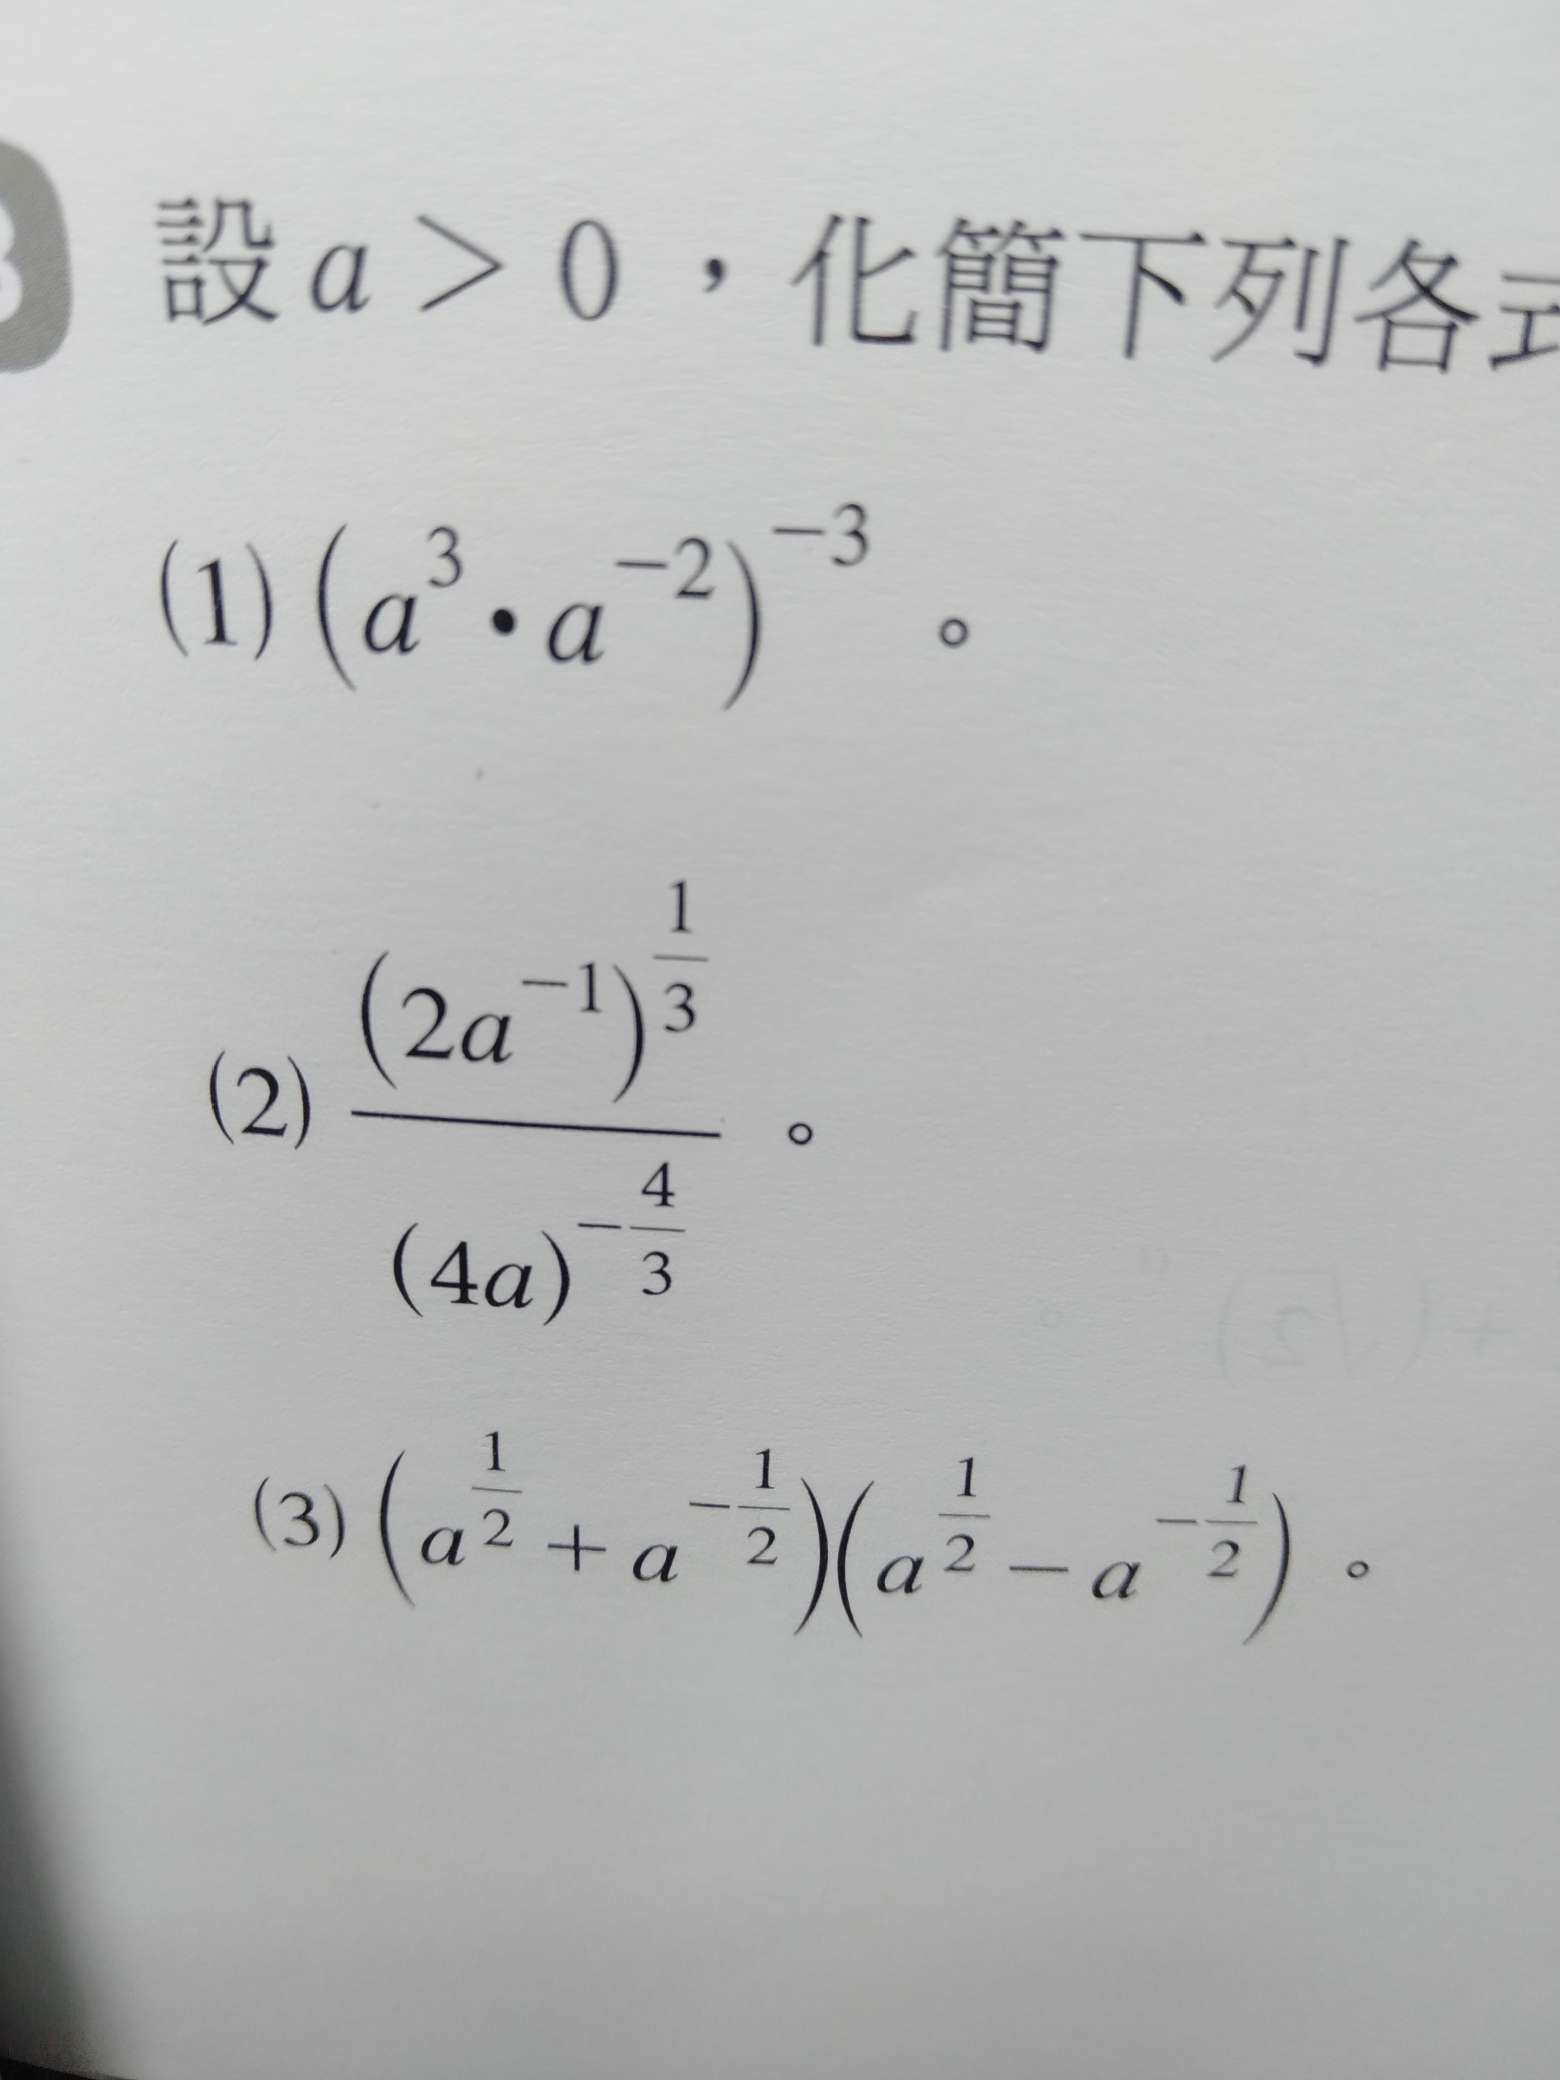 設 a > 0，化簡下列各式
(1) (a³•a⁻²)⁻³。
(2) \frac{(2a^{-1})^{\frac{1}{3}}}{(4a)^{-\frac{4}{3}}}。
(3) (a^{\frac{1}{2}} + a^{-\frac{1}{2}})(a^{\frac{1}{2}} − a^{-\frac{1}{2}})。